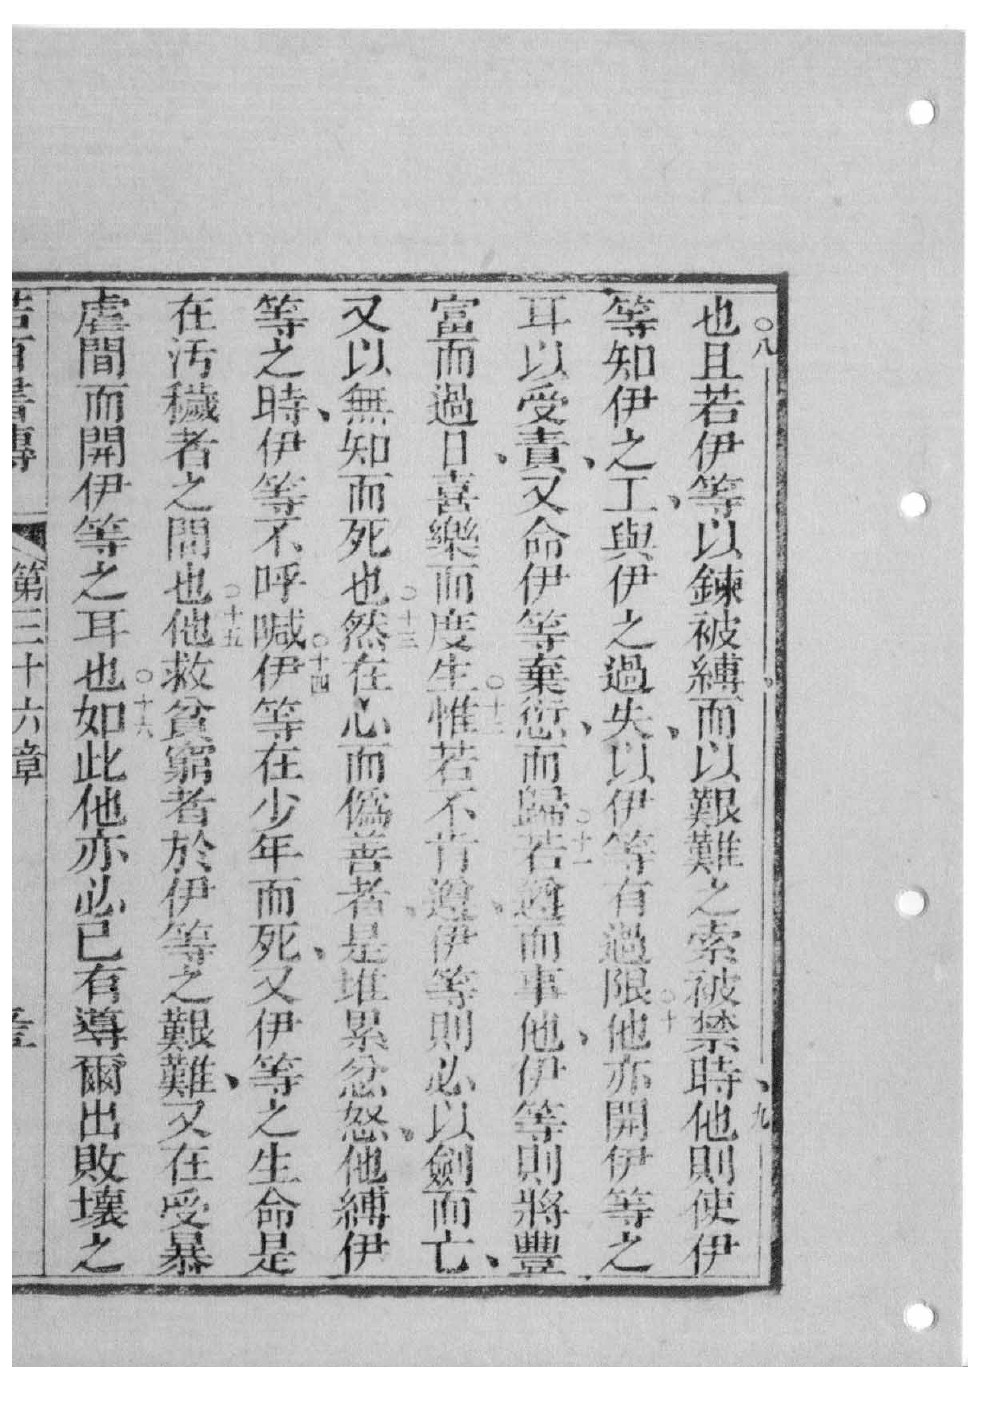 ○八
也且若伊等以鍊被縛而以艱難之索被禁時、他則使伊
九
等知伊之工、與伊之過失、以伊等有過限他亦開伊等之
○十
耳以受責、又命伊等棄愆、而歸若遵而事他、伊等則將豐
○十一
富而過日、喜樂而度生惟若不肯遵、伊等則必以劍而亡、
○十二
又以無知而死也然在心而僞善者、是堆累忿怒、他縛伊
○十三
等之時、伊等不呼喊伊等在少年而死、又伊等之生命是
○十四
在汚穢者之間也他救貧窮者於伊等之艱難、又在受暴
○十五
虐間而開伊等之耳也如此他亦必已有導爾出敗壞之
○十六
若百書傳 第三十六章